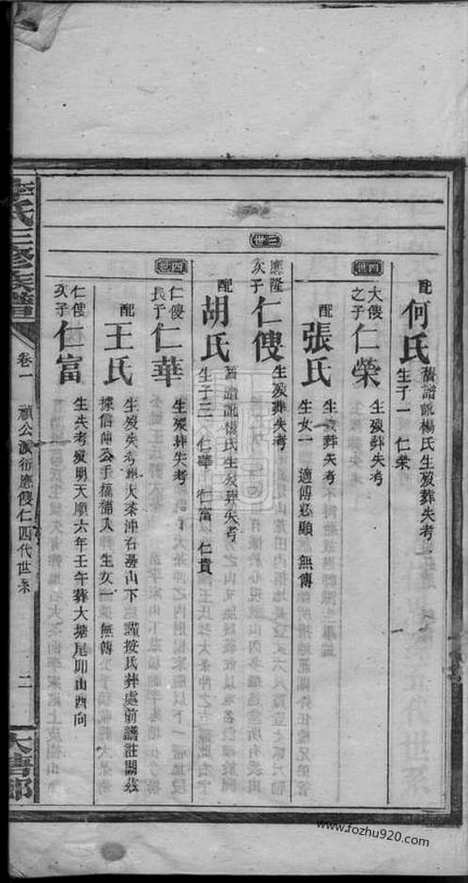 配何氏 舊譜訛楊氏生歿葬失考
生子一 仁榮
四世
大傻之子仁榮 生歿葬失考
配張氏 生歿葬失考
生女一 適傅必顯 無傳
三世
應隆次子仁傻 生歿葬失考
配胡氏 舊譜訛懷氏生歿葬失考
生子三 仁華 仁富 仁貴
四世
仁傻長子仁華 生歿葬失考
配王氏 生歿失考葬大茶沖右邊山下 謹按氏葬處前譜註闕茲
據信 生女一 無傳
仁傻次子仁富 生失考歿明天順六年壬午葬大塘尾卯山酉向
氏三修族譜
卷一 禎公派衍應傻仁四代世系
二
www.fozhu920.com